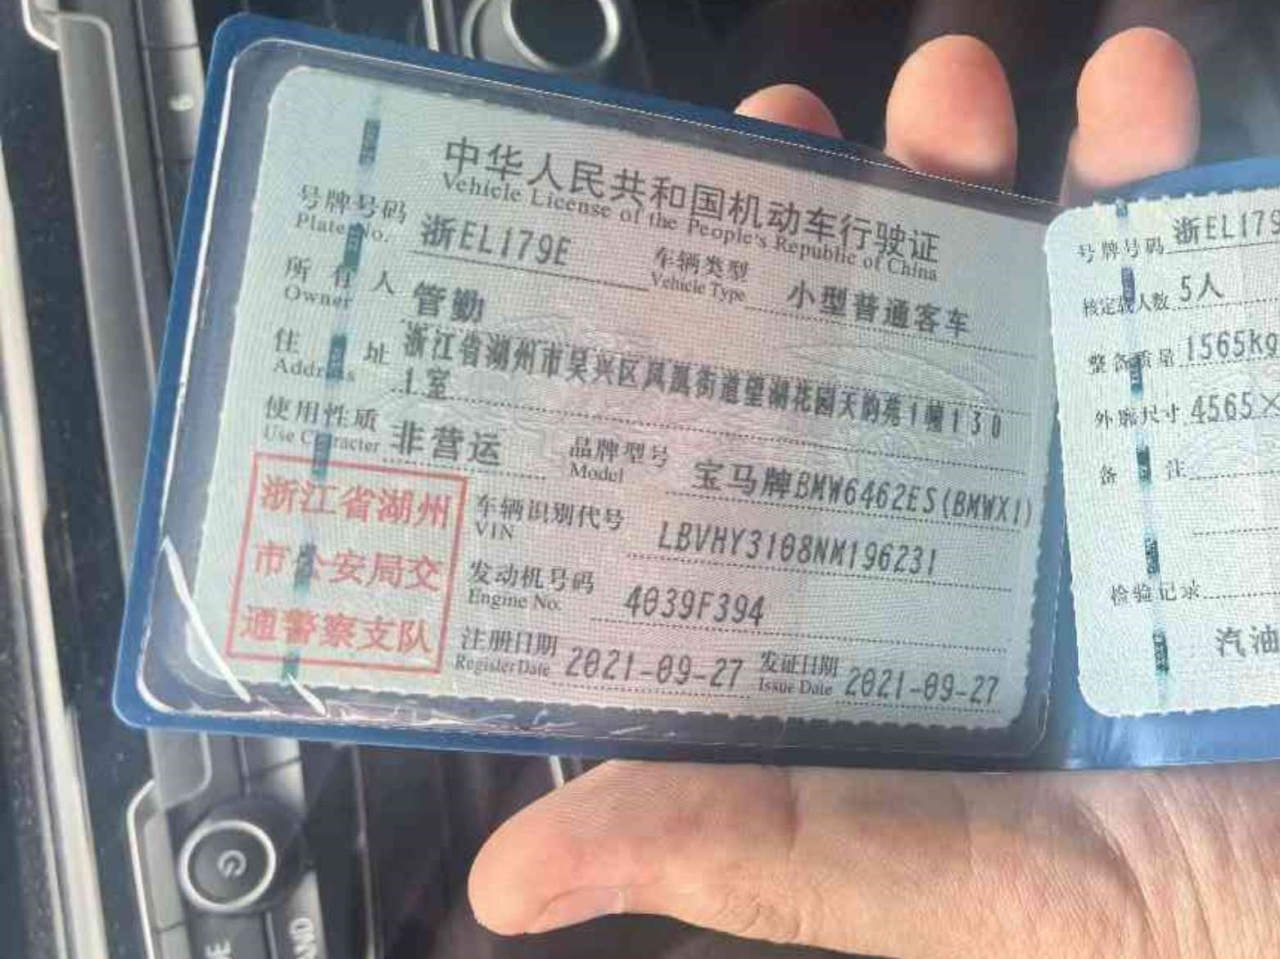 中华人民共和国机动车行驶证
Vehicle License of the People's Republic of China
号牌号码 浙EL179E 车辆类型 小型普通客车
Plate No. Vehicle Type
所有人 管勤
Owner
住址 浙江省湖州市吴兴区凤凰街道望湖花园天韵苑1幢130
Address 1室
使用性质 非营运 品牌型号 宝马牌BMW6462ES(BMWX1)
Use Character Model
浙江省湖州
市公安局交
通警察支队
车辆识别代号 LBVHY3108NM196231
VIN
发动机号码 4039F394
Engine No.
注册日期 2021-09-27 发证日期 2021-09-27
Register Date Issue Date
号牌号码 浙EL179
核定载人数 5人
整备质量 1565kg
外廓尺寸 4565×
备注
检验记录
汽油